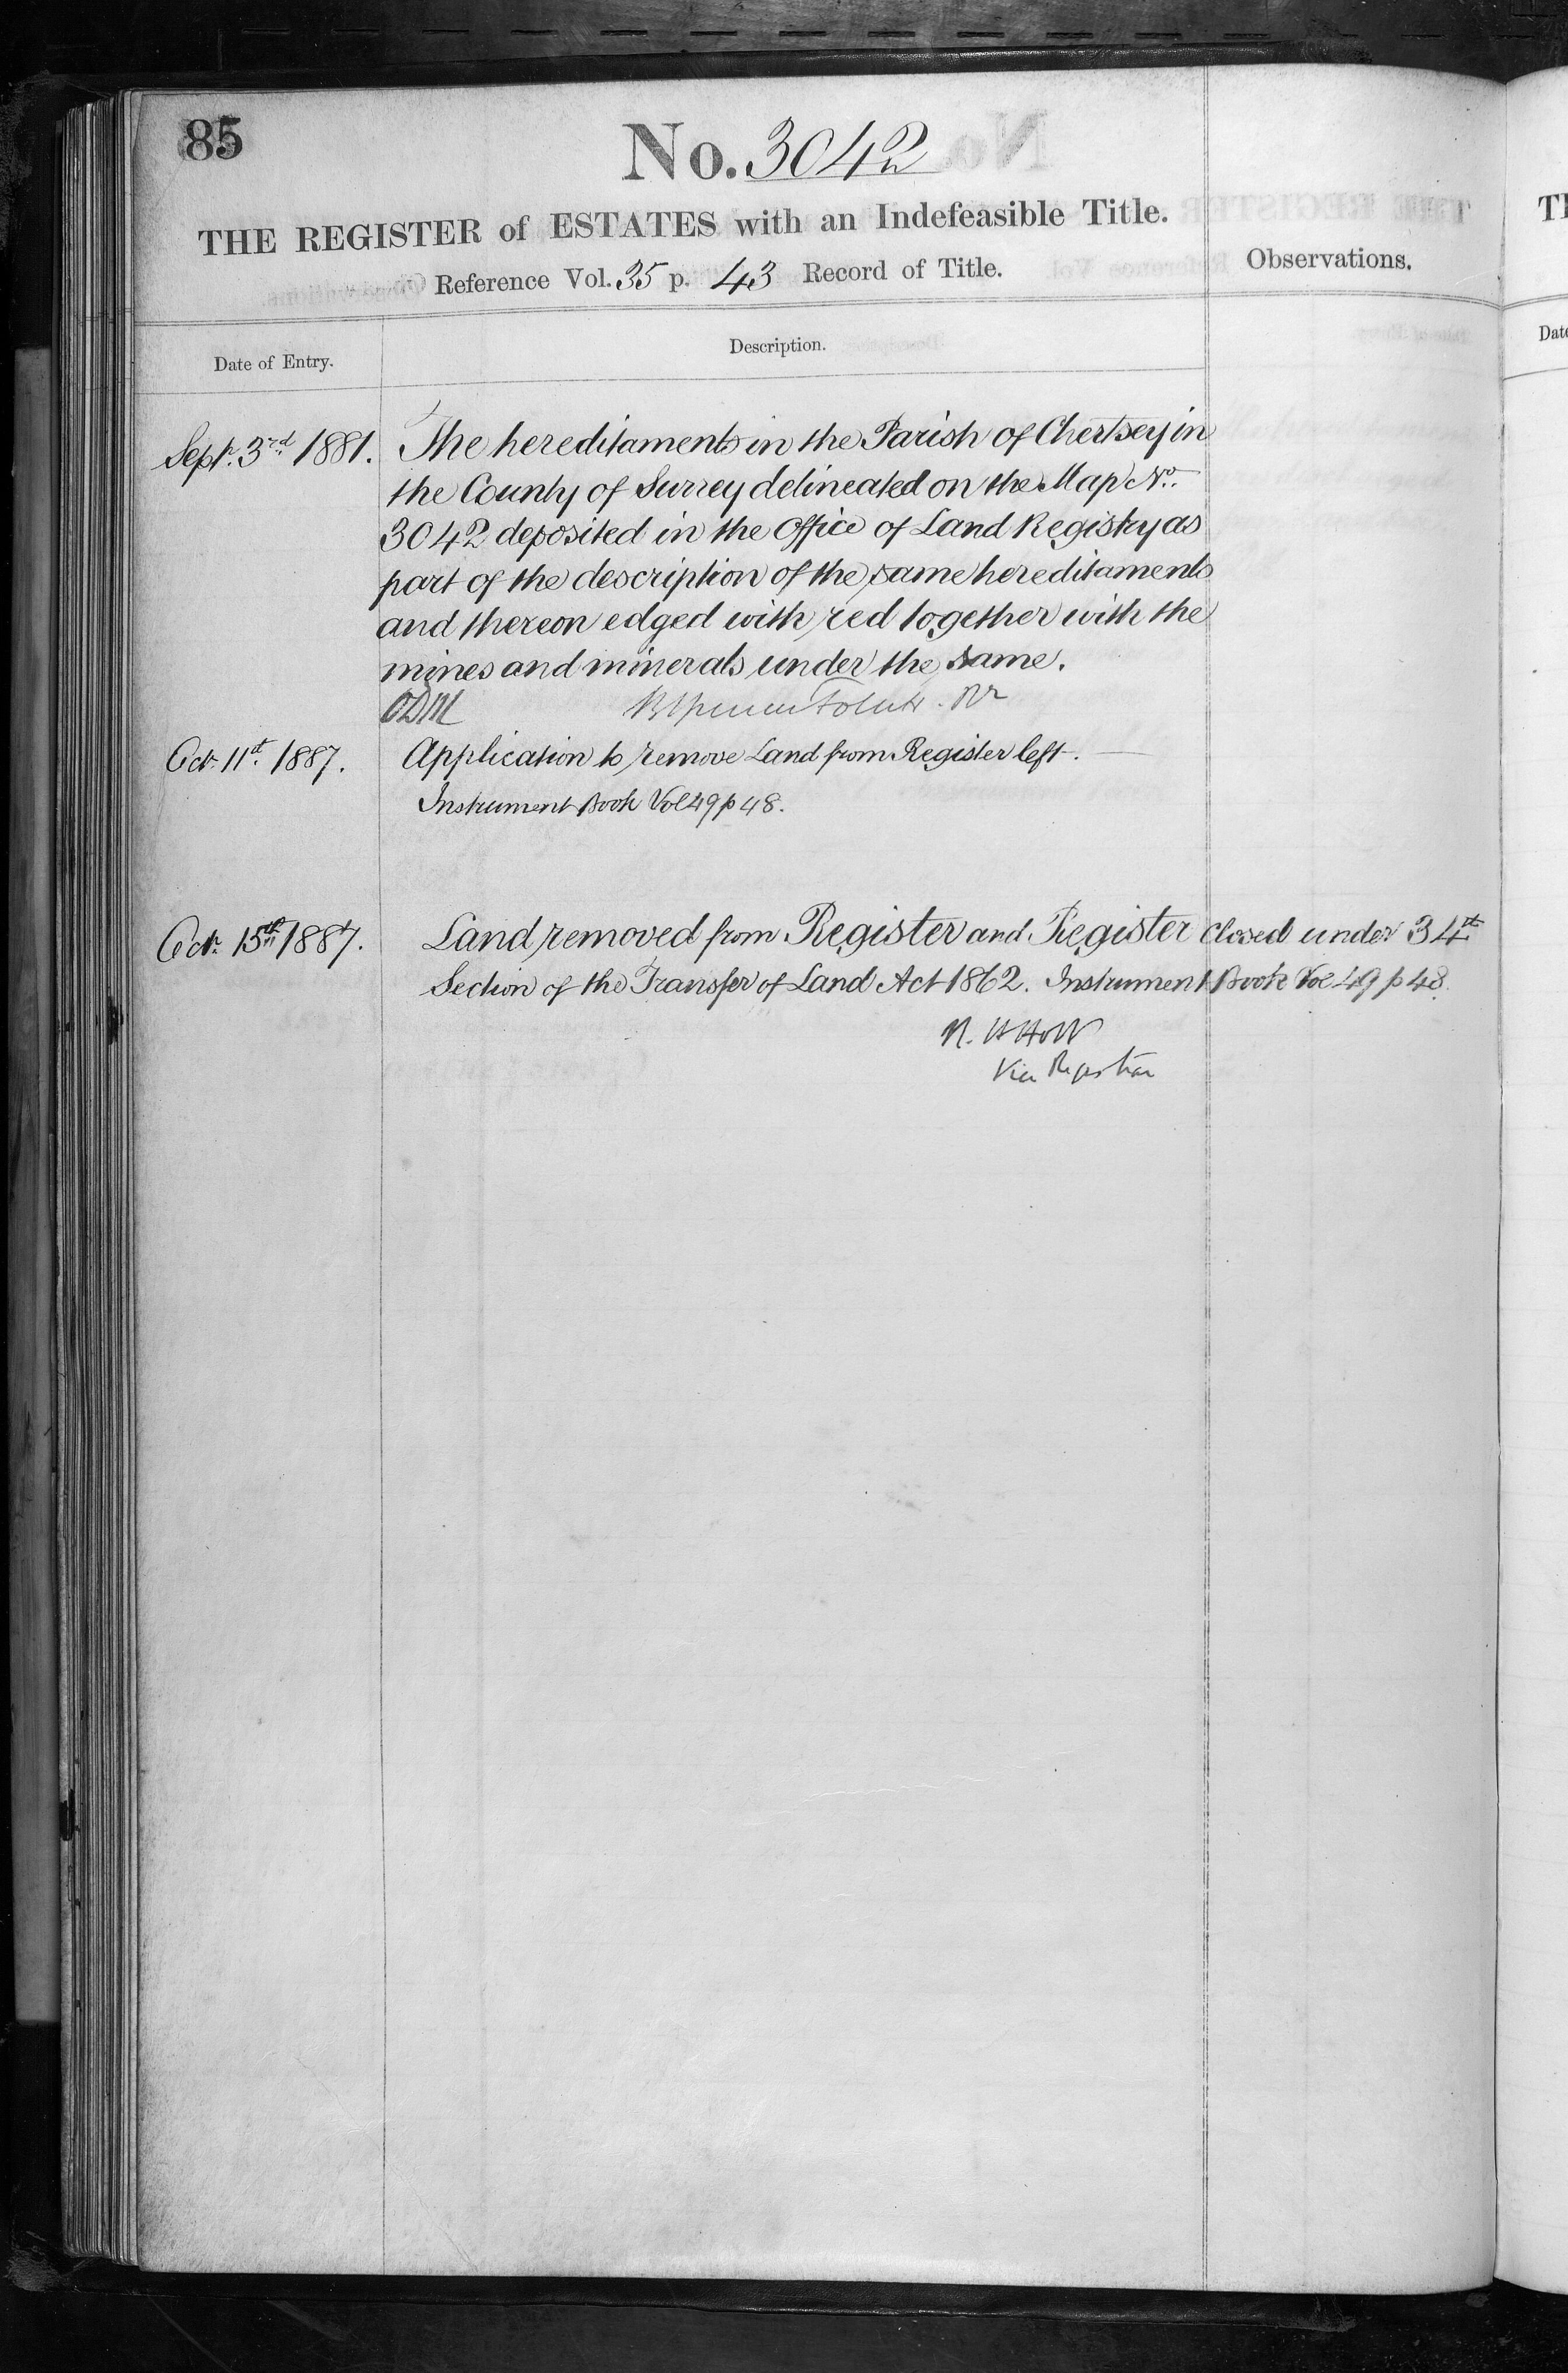 85
No. 3042
THE REGISTER of ESTATES with an Indefeasible Title.
Reference Vol. 35 p. 43 Record of Title.
Observations.
Date of Entry.
Description.
Sept. 3rd 1881. The hereditaments in the Parish of Chertsey in
the County of Surrey delineated on the Map No.
3042 deposited in the Office of Land Registry as
part of the description of the same hereditaments
and thereon edged with red together with the
mines and minerals under the same.
Oct. 11th. 1887. Application to remove Land from Register left.
Instrument Book Vol 49 p 48.
Oct. 15th 1887. Land removed from Register and Register closed under 34th
Section of the Transfer of Land Act 1862. Instrument Book Vol 49 p 48.
R. H Holt
Vice Registrar